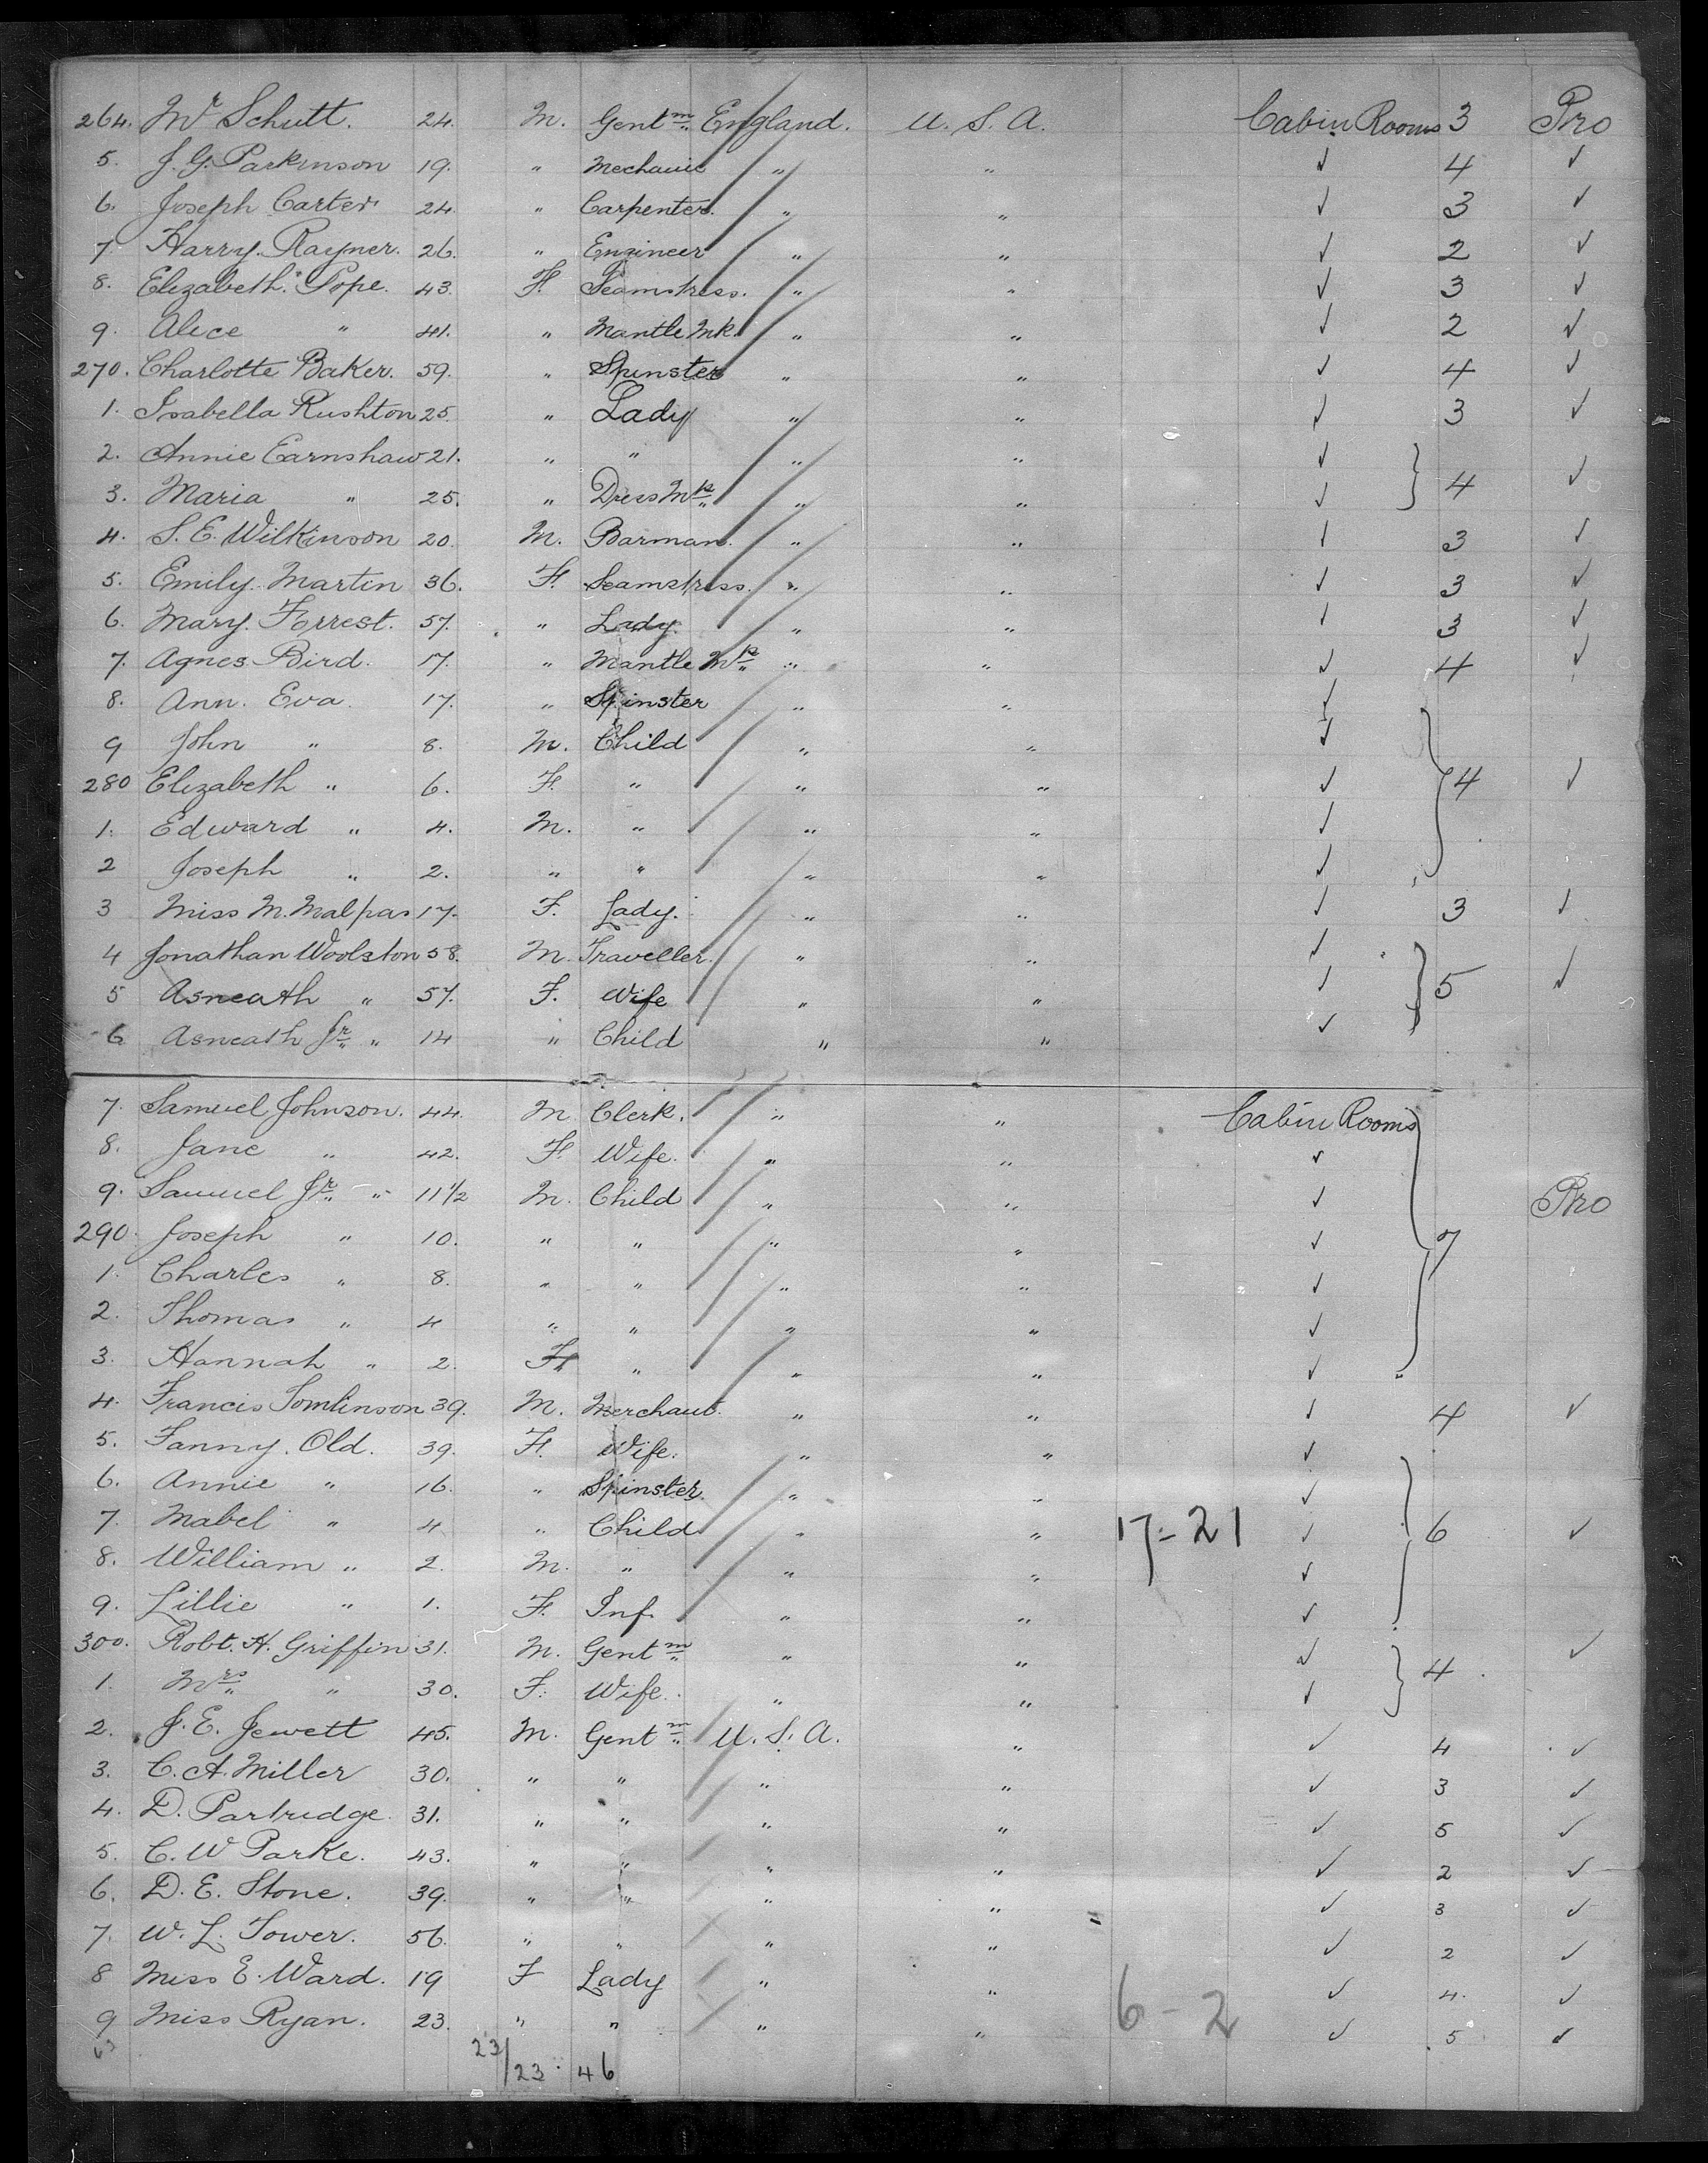 264. Mr Schutt. 24. M. Gentm England. U. S. A. Cabin Rooms 3 Pro
5. J. G. Parkinson 19. " Mechanic " " ✓ 4 ✓
6. Joseph Carter 24. " Carpenter. " " ✓ 3 ✓
7 Harry Rayner. 26. " Engineer " " ✓ 2 ✓
8. Elizabeth Pope. 43. F. Seamstress. " " ✓ 3 ✓
9. Alice " 41. " Mantle Mk. " " ✓ 2 ✓
270. Charlotte Baker. 59. " Spinster " " ✓ 4 ✓
1. Isabella Rushton 25. " Lady " " ✓ 3 ✓
2. Annie Earnshaw 21. " " " " ✓
3. Maria " 25. " Dress Mk " " ✓ } 4 ✓
4. S. E. Wilkinson 20. M. Barman. " " ✓ 3 ✓
5. Emily Martin 36. F. Seamstress. " " ✓ 3 ✓
6. Mary Forrest. 57. " Lady. " " ✓ 3 ✓
7. Agnes Bird. 17. " Mantle Mk " " ✓ 4 ✓
8. Ann. Eva. 17. " Spinster " " ✓
9 John " 8. M. Child " " ✓
280 Elizabeth " 6. F. " " " ✓ } 4 ✓
1. Edward " 4. M. " " " ✓
2 Joseph " 2. " " " " ✓
3 Miss M. Malpas 17. F. Lady. " " ✓ 3 ✓
4 Jonathan Woolston 58. M. Traveller. " " ✓
5 Asneath " 57. F. Wife " " ✓ } 5 ✓
6 Asneath Jr " 14 " Child " " ✓
7. Samuel Johnson. 44. M. Clerk. " " Cabin Rooms
8. Jane " 42. F. Wife. " " ✓
9. Samuel Jr " 11 1/2 M. Child " " ✓ Pro
290. Joseph " 10. " " " " ✓ } 7
1. Charles " 8. " " " " ✓
2. Thomas " 4 " " " " ✓
3. Hannah " 2. F. " " " ✓
4. Francis Tomlinson 39. M. Merchant. " " ✓ 4 ✓
5. Fanny. Old. 39. F. Wife. " " ✓
6. Annie " 16. " Spinster. " " ✓
7. Mabel " 4 " Child " " 17-21 ✓ } 6 ✓
8. William " 2. M. " " " ✓
9. Lillie " 1. F. Inf. " " ✓
300. Robt. H. Griffin 31. M. Gentm " " ✓ ✓
1. Mrs " 30. F. Wife. " " ✓ } 4
2. J. E. Jewett 45. M. Gentm U. S. A. " ✓ 4 ✓
3. C. A. Miller 30. " " " " ✓ 3 ✓
4. D. Partridge. 31. " " " " ✓ 5 ✓
5. C. W Parke. 43. " " " " ✓ 2 ✓
6. D. E. Stone. 39. " " " " ✓ 3 ✓
7. W. L. Tower. 56. " " " " ✓ 2 ✓
8 Miss E. Ward. 19 F Lady " " 6-2 ✓ 4. ✓
9 Miss Ryan. 23. " " " " ✓ 5 ✓
23/23 46